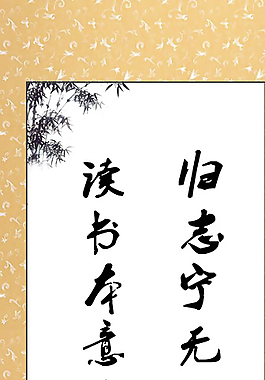 归志宁无
读书本意